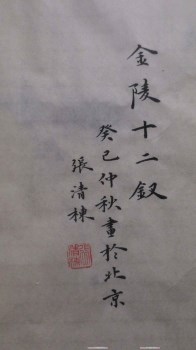 金陵十二釵
癸巳仲秋畫於北京
張清棟